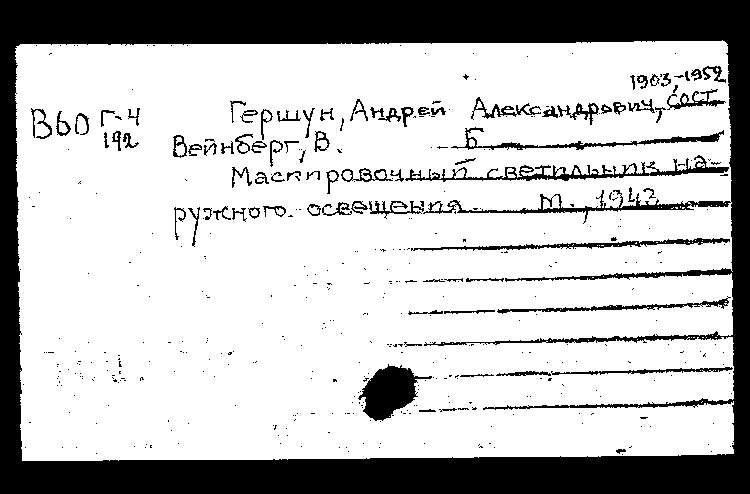 1903-1952
В60 Г-4 Гершун, Андрей Александрович, сост.
192 Вейнберг, В. Б
Маскировочный светильник на-
ружного освещения. М., 1943